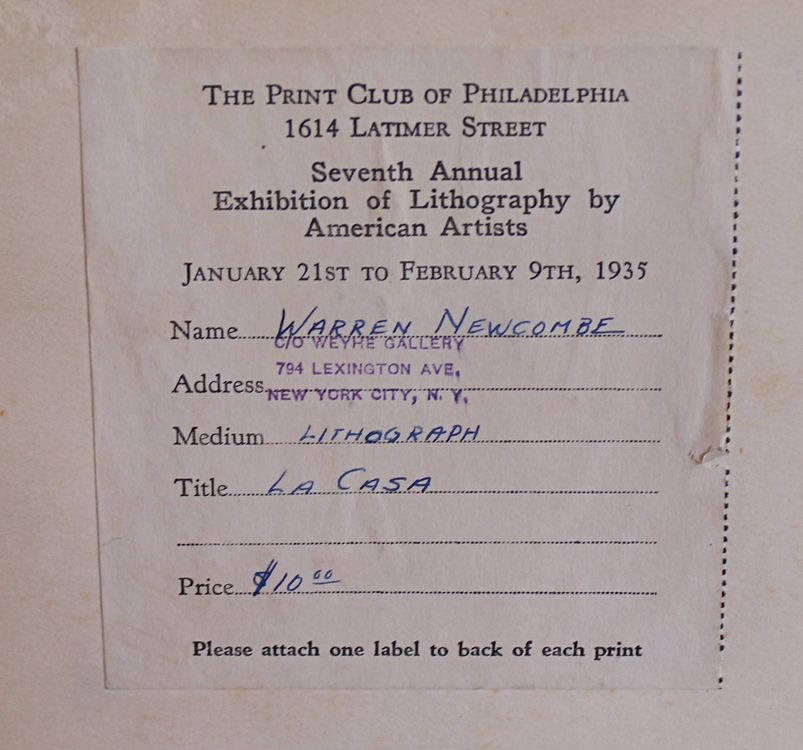 THE PRINT CLUB OF PHILADELPHIA
1614 LATIMER STREET
Seventh Annual
Exhibition of Lithography by
American Artists
JANUARY 21ST TO FEBRUARY 9TH, 1935
Name WARREN NEWCOMBE
C/O WEYHE GALLERY
794 LEXINGTON AVE,
Address NEW YORK CITY, N. Y.
Medium LITHOGRAPH
Title LA CASA
Price $10 00
Please attach one label to back of each print